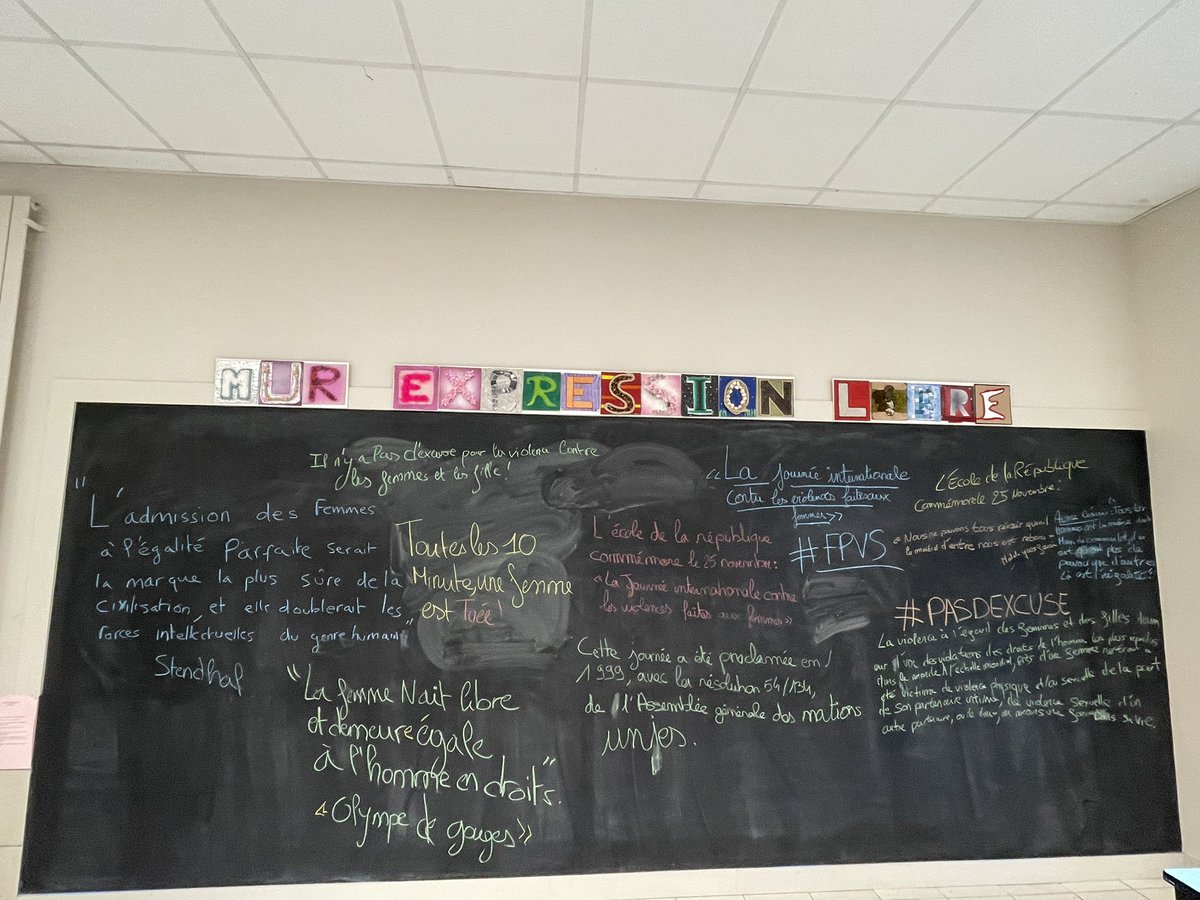 MUR EXPRESSION LIBRE
Il n'y a Pas d'excuse pour la violence contre
les femmes et les fille !
"L'admission des Femmes
à l'égalité Parfaite serait
la marque la plus sûre de la
civilisation, et elle doublerait les
forces intellectuelles du genre humain"
Stendhal
Toutes les 10
Minute, une femme
est Tuée !
"La femme Nait libre
et demeure égale
à l'homme en droits".
«Olympe de gouges»
«La Journée internationale
contre les violences faites aux
femmes»
#FPVS
L'école de la république
commémore le 25 novembre :
«La Journée internationale contre
les violences faites aux femmes»
Cette journée a été proclamée en
1999, avec la résolution 54/134,
de l'Assemblée générale des nations
unies.
L'École de la République
Commémore le 25 Novembre :
«Nous ne pouvons tous réussir quand
la moitié d'entre nous est retenue»
#PASDEXCUSE
La violence à l'égard des femmes et des filles
l'une des violations des droits de l'homme les plus
dans le monde. À l'échelle mondial, près d'une femme
été victime de violence physique et/ou sexuelle de la part
de son partenaire intime, de violence sexuelle d'un
autre partenaire, ou les deux, au moins une fois dans sa vie